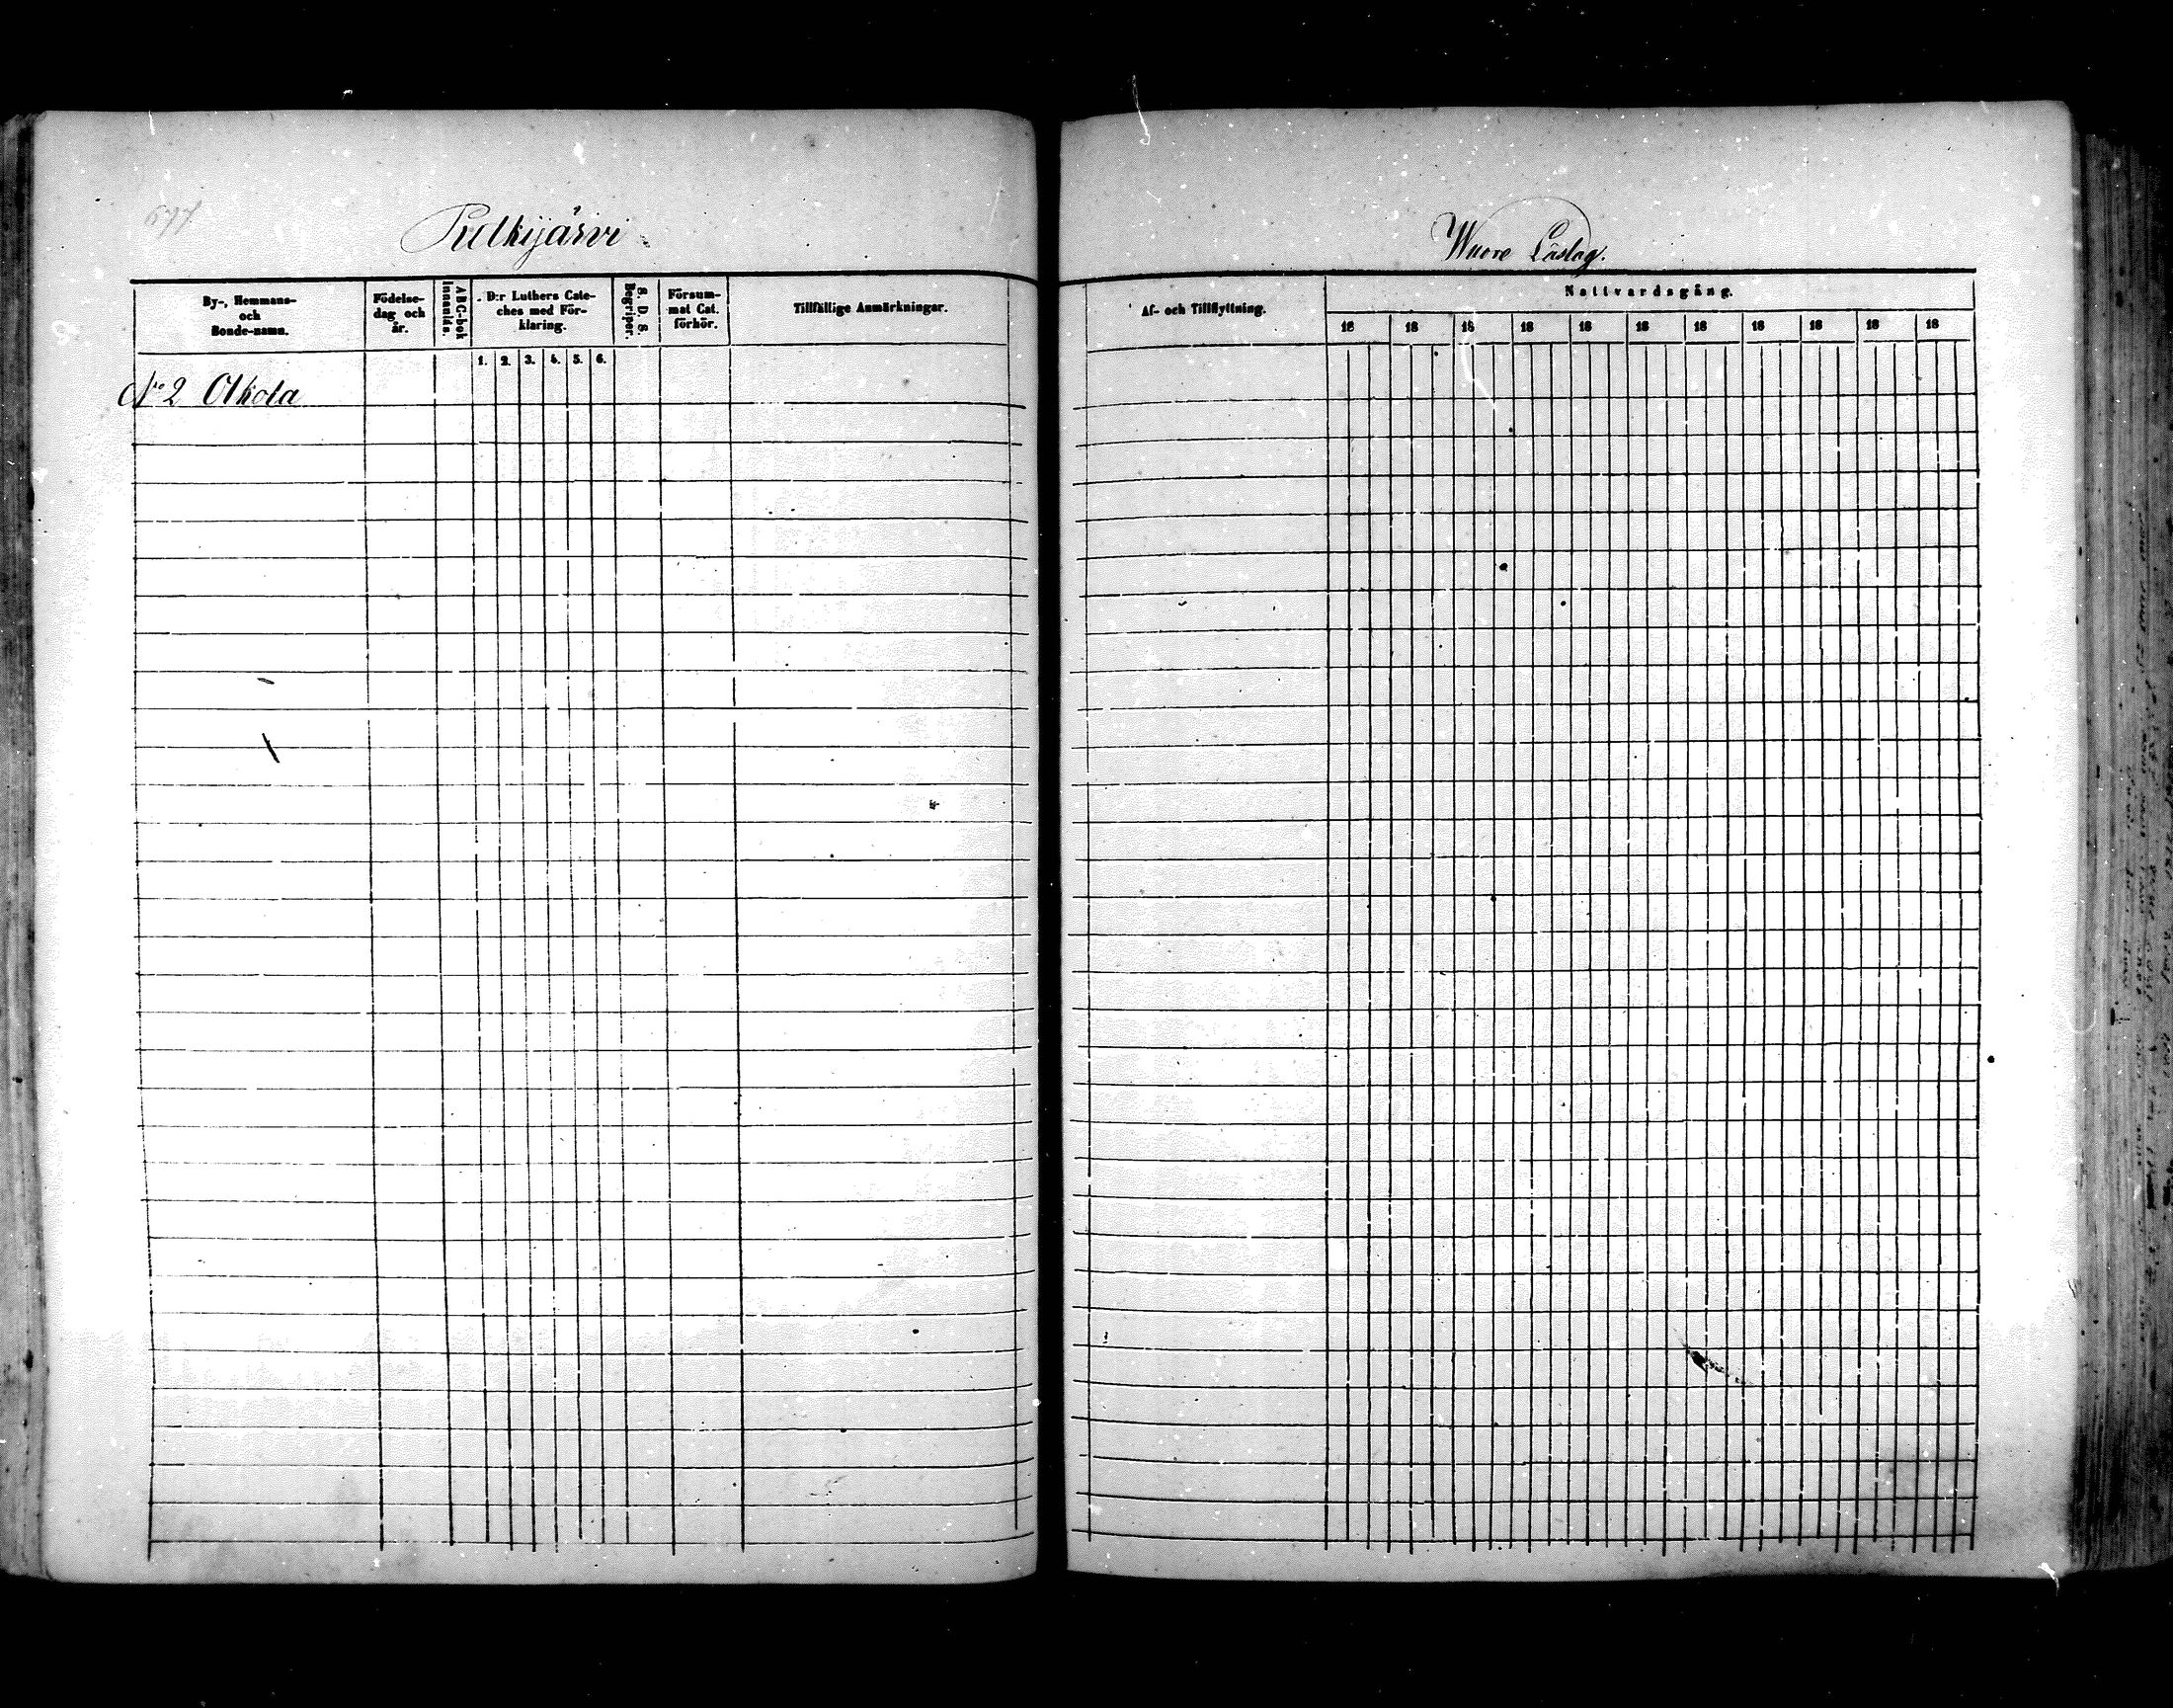 677
Pulkijärvi
Wuore Läslag.
By-, Hemmans-
och
Bonde-namn.
Födelse-
dag och
år.
ABC-bok
Innanläs.
D:r Luthers Cate-
ches med För-
klaring.
S. D. S.
Begriper.
Försum-
mat Cat.
förhör.
Tillfällige Anmärkningar.
1. 2. 3. 4. 5. 6.
Af- och Tillflyttning.
Nattvardsgång.
18 18 18 18 18 18 18 18 18 18 18
No 2 Olkola